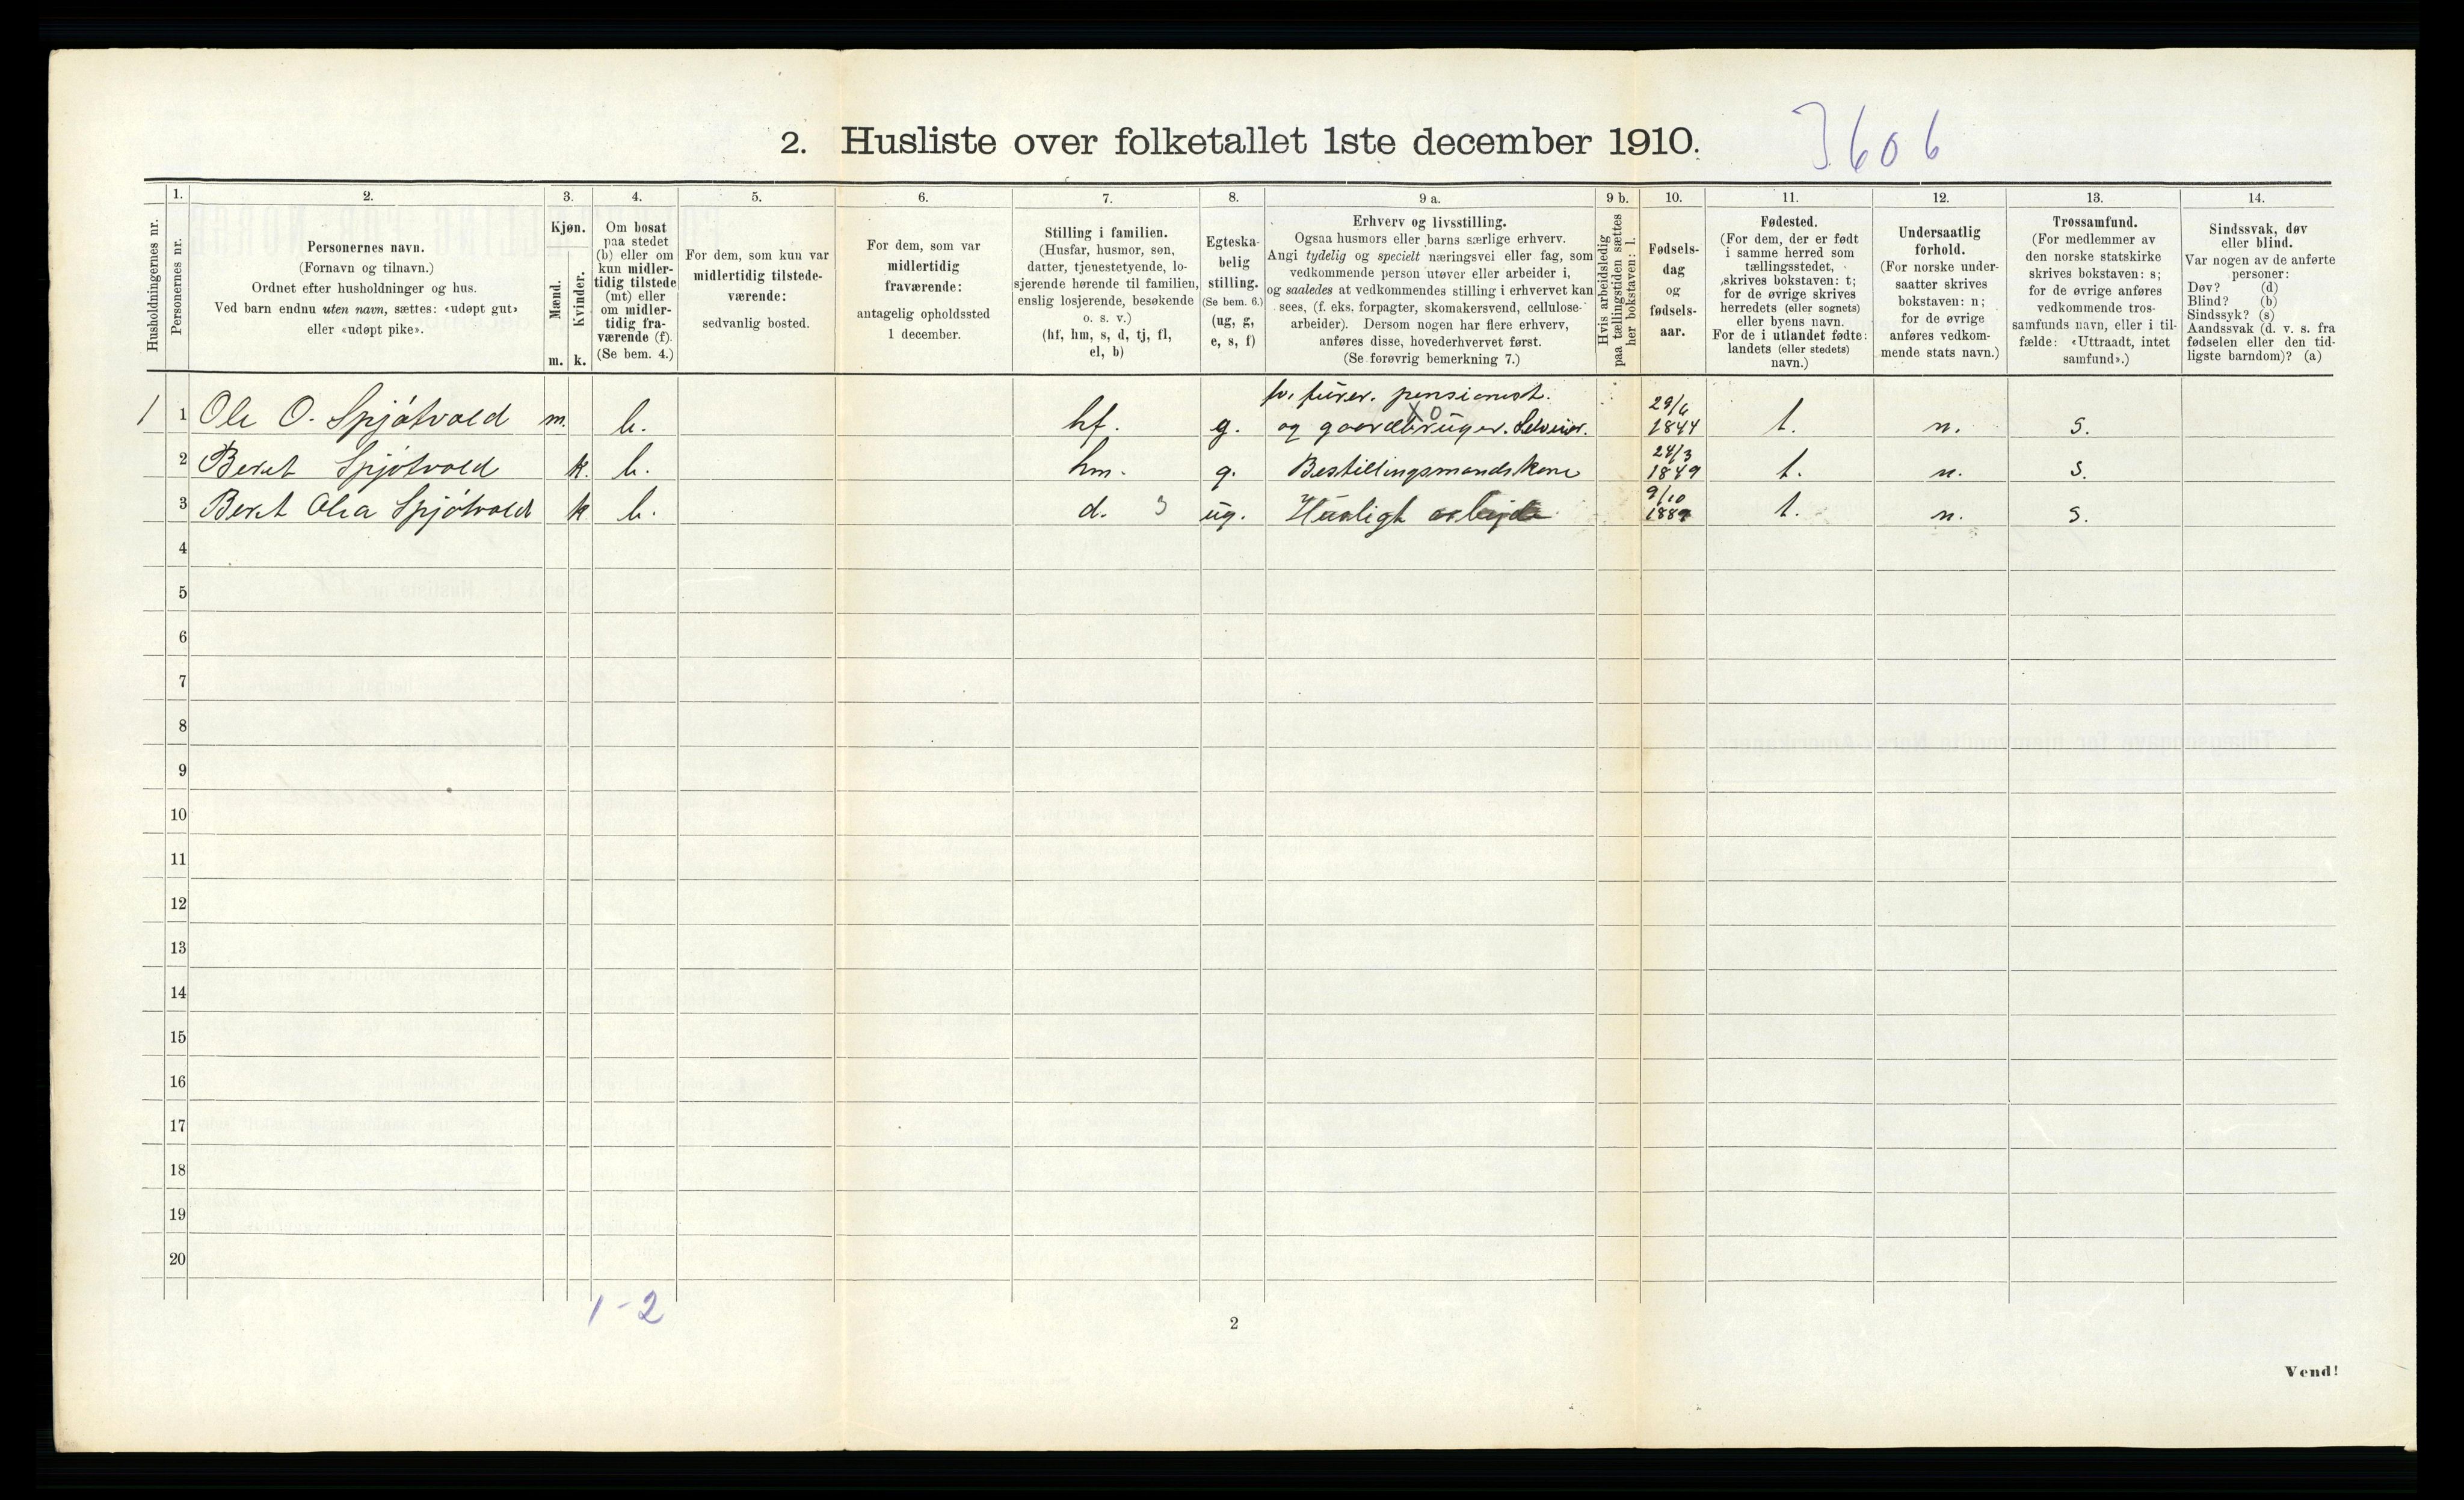 2. Husliste over folketallet 1ste december 1910.
3606
Husholdningernes nr.
1.
Personernes nr.
2.
Personernes navn.
(Fornavn og tilnavn.)
Ordnet efter husholdninger og hus.
Ved barn endnu uten navn, sættes: «udøpt gut»
eller «udøpt pike».
3.
Kjøn.
Mænd.
Kvinder.
m. k.
4.
Om bosat
paa stedet
(b) eller om
kun midler-
tidig tilstede
(mt) eller
om midler-
tidig fra-
værende (f).
(Se bem. 4.)
5.
For dem, som kun var
midlertidig tilstede-
værende:
sedvanlig bosted.
6.
For dem, som var
midlertidig
fraværende:
antagelig opholdssted
1 december.
7.
Stilling i familien.
(Husfar, husmor, søn,
datter, tjenestetyende, lo-
sjerende hørende til familien,
enslig losjerende, besøkende
o. s. v.)
(hf, hm, s, d, tj, fl,
el, b)
8.
Egteska-
belig
stilling.
(Se bem. 6.)
(ug, g,
e, s, f)
9 a.
Erhverv og livsstilling.
Ogsaa husmors eller barns særlige erhverv.
Angi tydelig og specielt næringsvei eller fag, som
vedkommende person utøver eller arbeider i,
og saaledes at vedkommendes stilling i erhvervet kan
sees, (f. eks. forpagter, skomakersvend, cellulose-
arbeider). Dersom nogen har flere erhverv,
anføres disse, hovederhvervet først.
(Se forøvrig bemerkning 7.)
9 b.
Hvis arbeidsledig
paa tællingstiden sættes
her bokstaven: l.
10.
Fødsels-
dag
og
fødsels-
aar.
11.
Fødested.
(For dem, der er født
i samme herred som
tællingsstedet,
skrives bokstaven: t;
for de øvrige skrives
herredets (eller sognets)
eller byens navn.
For de i utlandet fødte:
landets (eller stedets)
navn.)
12.
Undersaatlig
forhold.
(For norske under-
saatter skrives
bokstaven: n;
for de øvrige
anføres vedkom-
mende stats navn.)
13.
Trossamfund.
(For medlemmer av
den norske statskirke
skrives bokstaven: s;
for de øvrige anføres
vedkommende tros-
samfunds navn, eller i til-
fælde: «Uttraadt, intet
samfund».)
14.
Sindssvak, døv
eller blind.
Var nogen av de anførte
personer:
Døv? (d)
Blind? (b)
Sindssyk? (s)
Aandssvak (d. v. s. fra
fødselen eller den tid-
ligste barndom)? (a)
fv. furer. pensionist. 29/6
1 1 Ole O. Spjøtvold m. b. hf. g. og gaardbruger. Selveier. 1844 t. n. s.
XO
24/3
2 Beret Spjøtvold k. b. hm. g. Bestillingsmandskone 1849 t. n. s.
9/10
3 Beret Olea Spjøtvold k b. d. 3 ug. Husligt arbejde 188 t. n. s.
4
5
6
7
8
9
10
11
12
13
14
15
16
17
18
19
20
1-2
2
Vend!